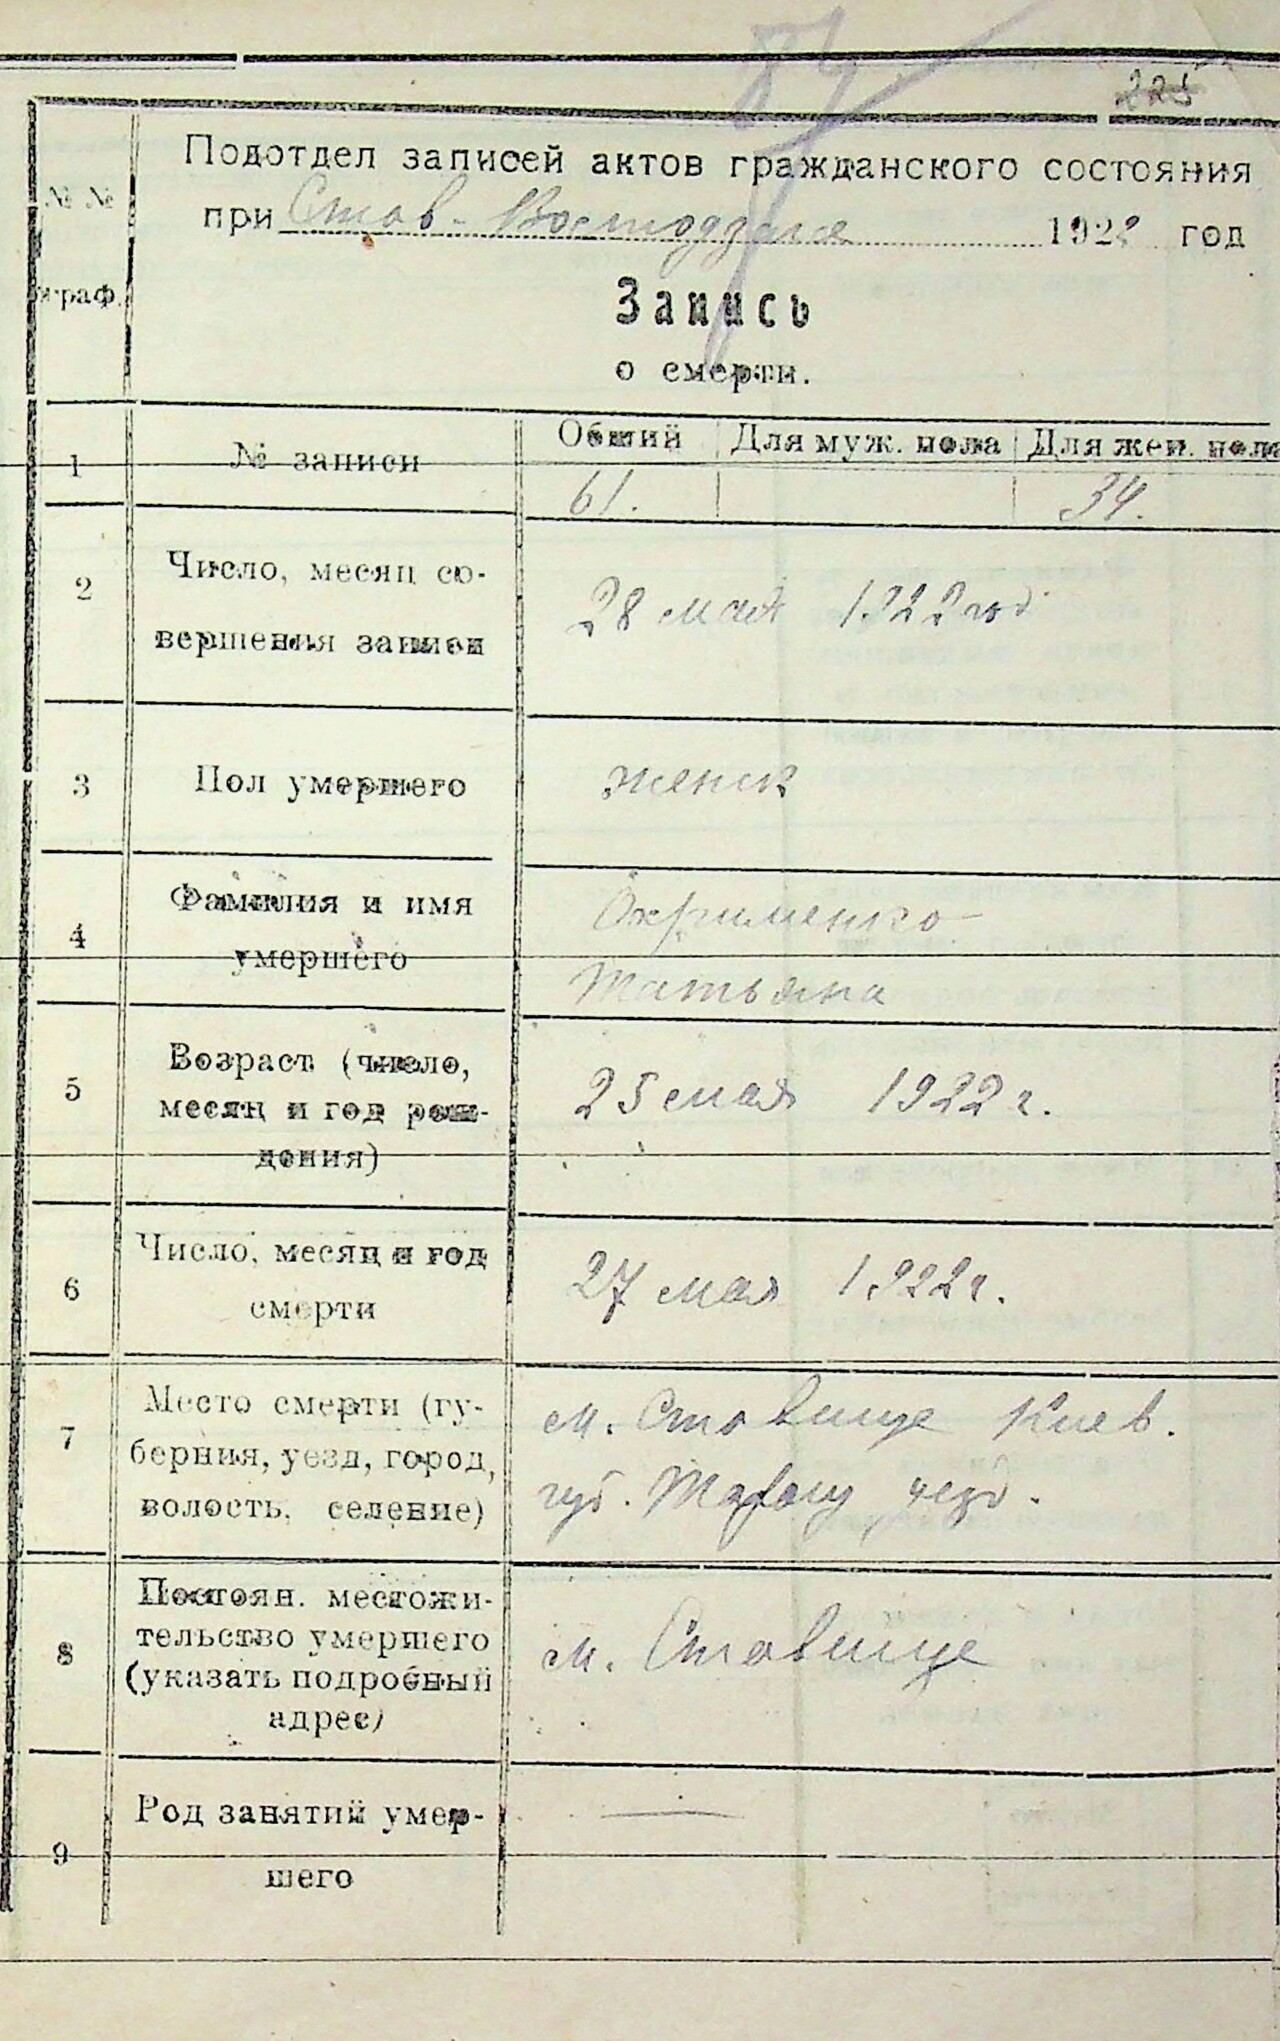 225
Подотдел записей актов гражданского состояния
при Став- 1922 год
№ №
граф.
Запись
о смерти.
1 № записи Общий Для муж. пола Для жен. пола
61. 34.
2 Число, месяц со-
вершения записи
28 мая 1922 год
3 Пол умершего женск
4 Фамилия и имя
умершего
Охрименко
Татьяна
5 Возраст (число,
месяц и год рож-
дения)
25 мая 1922 г.
6 Число, месяц и год
смерти
27 мая 1922 г.
7 Место смерти (гу-
берния, уезд, город,
волость, селение)
м. Ставище Киев.
губ. Таращ уезд.
8 Постоян. местожи-
тельство умершего
(указать подробный
адрес)
м. Ставище
9 Род занятий умер-
шего
—